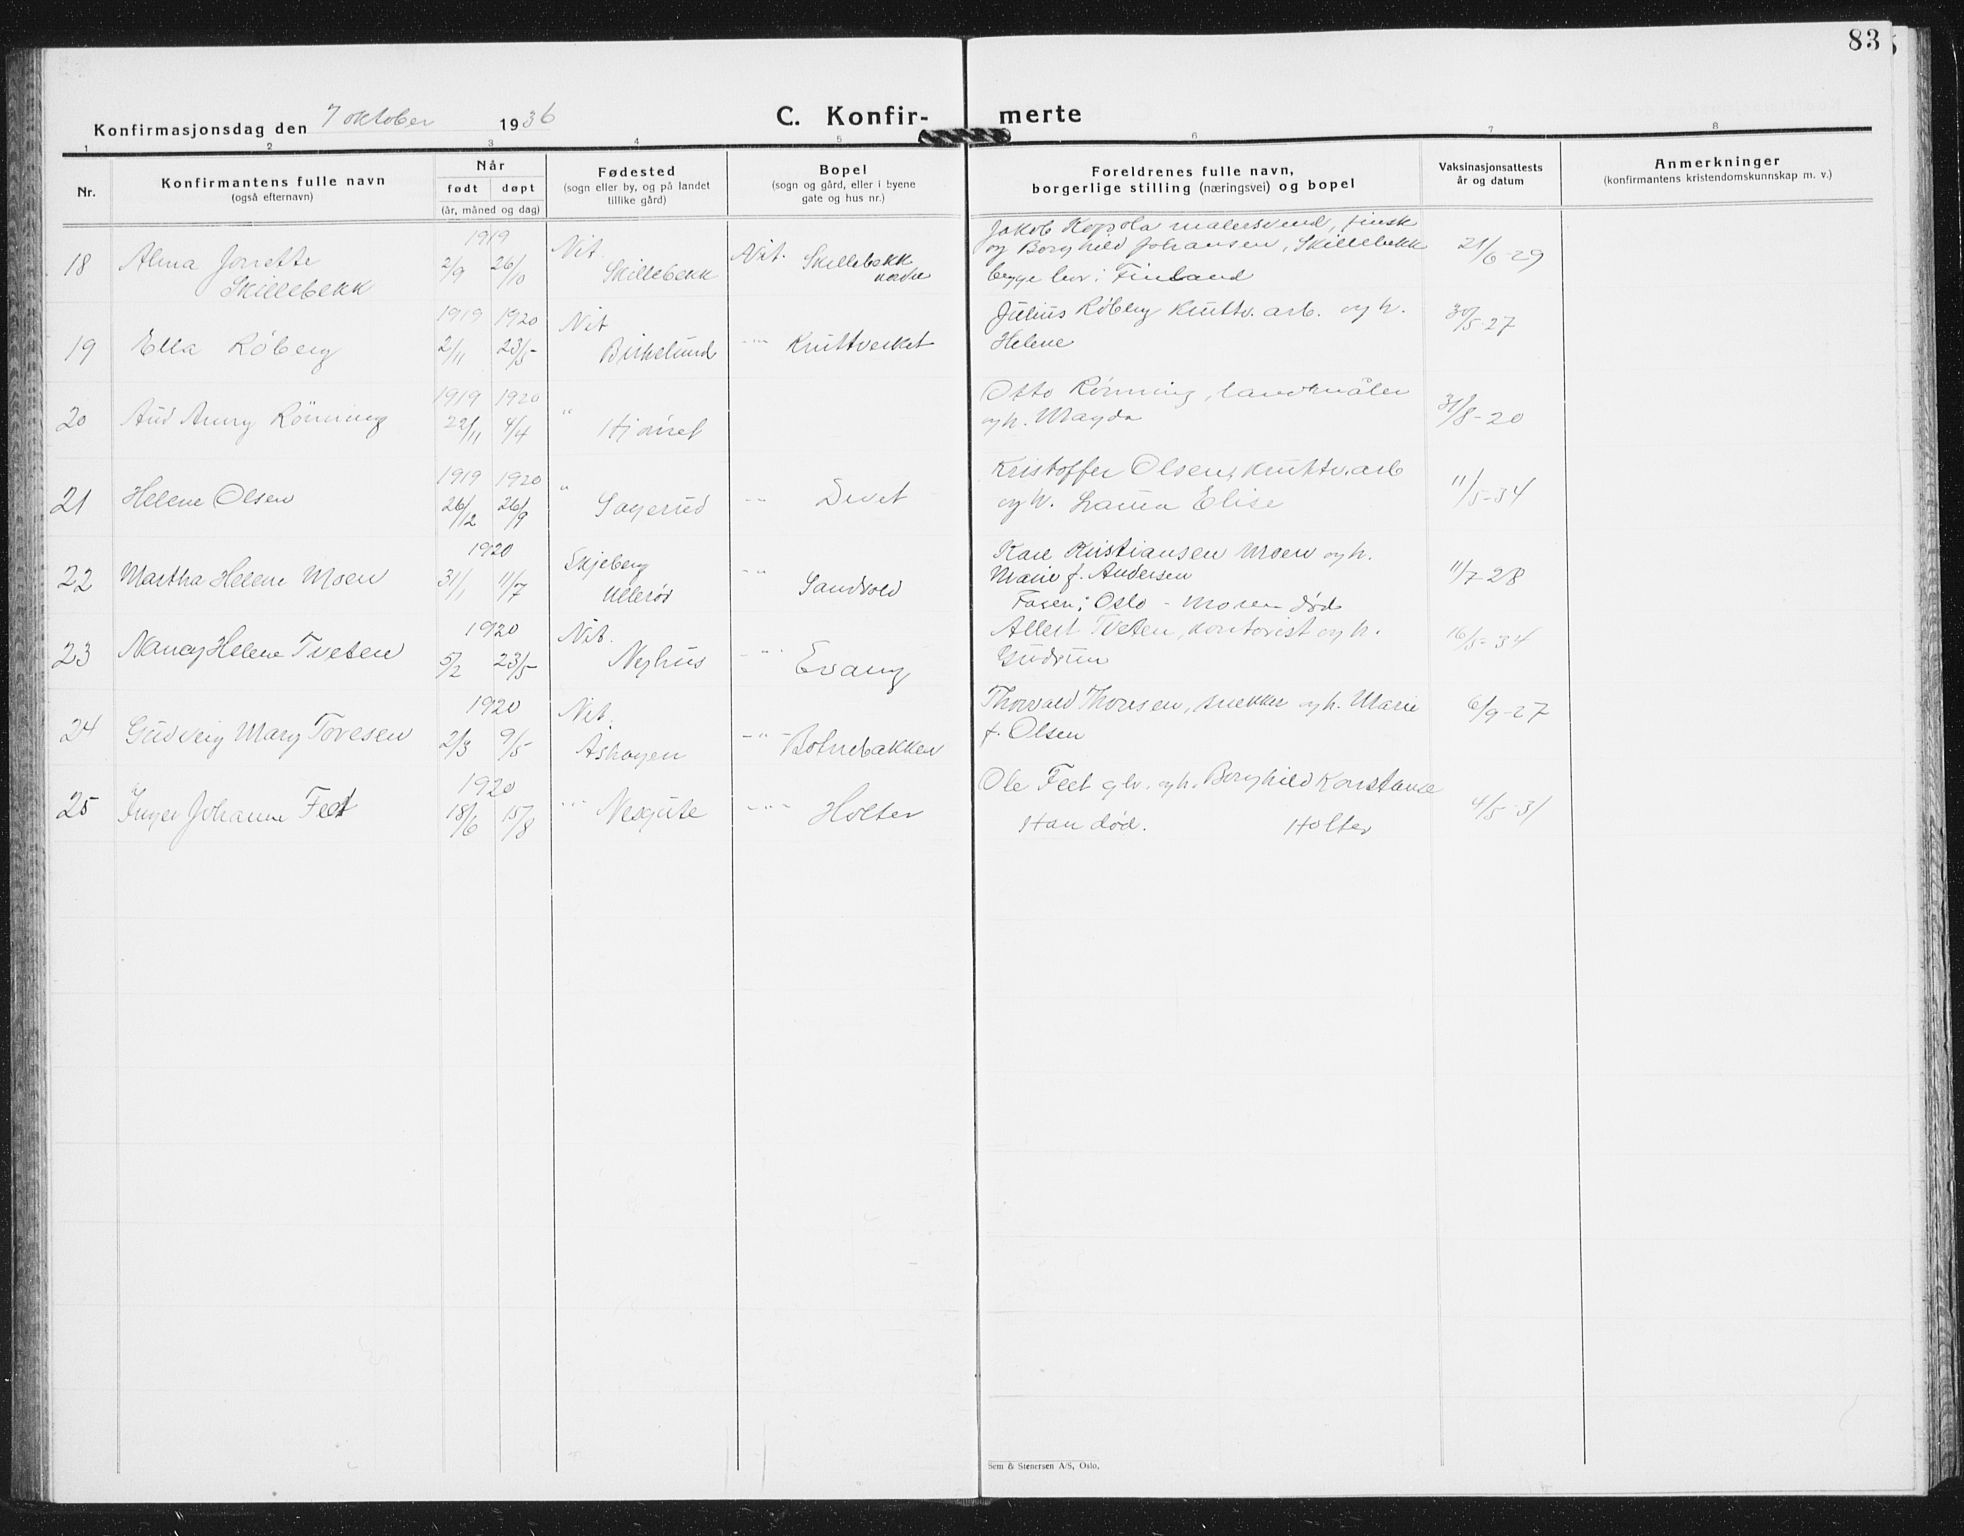 83
Konfirmasjonsdag den 7 oktober 1936
C. Konfir- merte
1 2 3 4 5 6 7 8
Nr.
Konfirmantens fulle navn
(også efternavn)
Når
født døpt
(år, måned og dag)
Fødested
(sogn eller by, og på landet
tillike gård)
Bopel
(sogn og gård, eller i byene
gate og hus nr.)
Foreldrenes fulle navn,
borgerlige stilling (næringsvei) og bopel
Vaksinasjonsattests
år og datum
Anmerkninger
(konfirmantens kristendomskunnskap m. v.)
1919 Jakob Koppola malersvend, finsk
18 Alma 2/9 26/10 Nit. Nit. Skillebekk og Borghild Johansen, Skillebekk 21/6-29
Skillebekk Skillebekk nedre begge bor i Finland
1919 1920 Nit Julius Røberg Kruttv. arb. og h. 30/5-27
19 Ella Røberg 2/11 23/5 Birkelund -"- Kruttverket Helene
1919 1920 Otto Rønning, landmåler
20 Aud Anny Rönning 22/11 4/4 " og h. Magda 31/8-20
1919 1920 Kristoffer Olsen, kruttv.arb
21 Helene Olsen 26/12 26/9 " Sagerud -"- og h. Laura Elise 11/5-34
1920 Skjeberg Kare Kristiansen Moen og h.
22 Martha Helene Moen 31/1 11/7 Ullerød -"- Sandvold Marie f. Andersen 11/7-28
Faren i Oslo - Moren død
1920 Nit. Allert Tveten, kontorist og h. 16/5-34
23 Nancy Helene Tveten 5/2 23/5 Nyhus -"- Evang Gudrun
1920 Nit. Thorvald Thoresen, snekker og h. Marie 6/9-27
24 Gudveig Mary Toresen 2/3 9/5 Åshagen -"- Botnebakken f. Olsen
1920 Ole Feet og h. Borghild Konstanse
25 Inger Johanne Feet 18/6 15/8 -"- -"- Holter Han død. Holter 4/5-31
Sem & Stenersen A/S, Oslo.